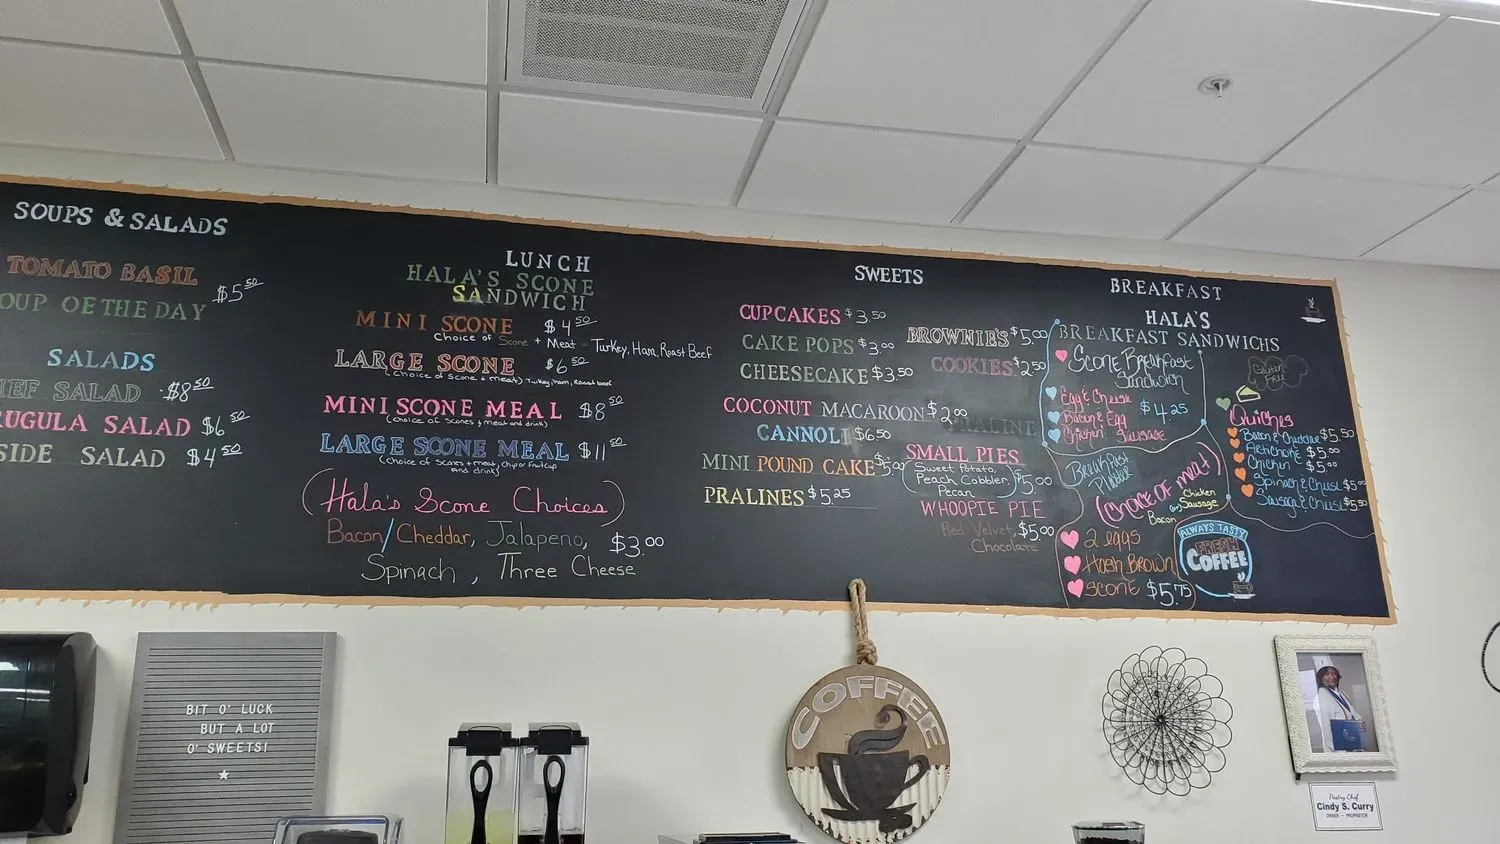 SOUPS & SALADS
TOMATO BASIL
$5.50
OUP OF THE DAY
SALADS
HEF SALAD $8.50
RUGULA SALAD $6.50
SIDE SALAD $4.50
LUNCH
HALA'S SCONE
SANDWICH
MINI SCONE $4.50
Choice of Scone + Meat - Turkey, Ham, Roast Beef
LARGE SCONE $6.50
(Choice of Scone + meat) Turkey, ham, Roast beef
MINI SCONE MEAL $8.50
(choice of scones + meat and drink)
LARGE SCONE MEAL $11.50
(Choice of Scones + meat, chip or fruit cup
and drink)
(Hala's Scone Choices)
Bacon/Cheddar, Jalapeno, $3.00
Spinach, Three Cheese
SWEETS
CUPCAKES $3.50
CAKE POPS $3.00
CHEESECAKE $3.50
COCONUT MACAROON $2.00
CANNOLI $6.50
MINI POUND CAKE $5.00
PRALINES $5.25
BROWNIE'S $5.00
COOKIES $2.50
SMALL PIES
(Sweet Potato,
Peach Cobbler, $5.00
Pecan)
WHOOPIE PIE
Red Velvet, $5.00
Chocolate
BREAKFAST
HALA'S
BREAKFAST SANDWICHS
Scone Breakfast
Sandwich
Egg & Cheese
Bacon & Egg $4.25
Chicken Sausage
Breakfast
(choice of meat)
Chicken
Sausage
Bacon
2 eggs
Hash Brown
Scone $5.75
Gluten
Free
Quiches
Bacon & Cheddar $5.50
Artichoke $5.00
Chicken $5.00
Spinach & Chese $5.00
Sausage & Chese $5.50
ALWAYS TASTY
FRESH
COFFEE
BIT O' LUCK
BUT A LOT
O' SWEETS!
COFFEE
Pastry Chef
Cindy S. Curry
OWNER - PROPRIETOR